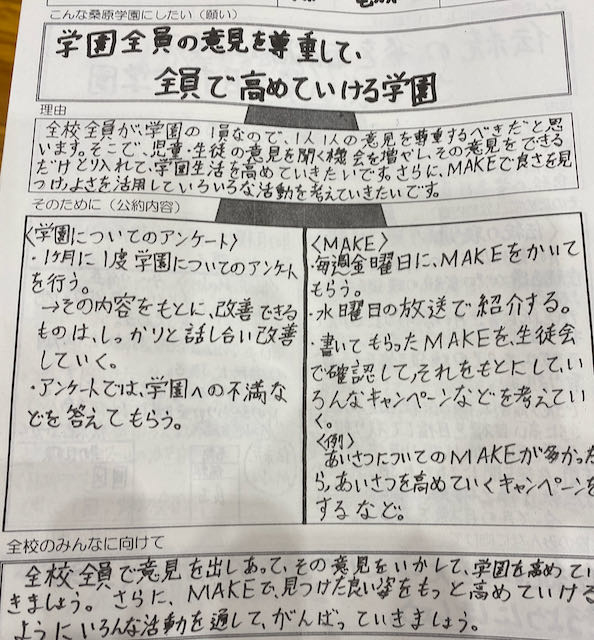 こんな桑原学園にしたい（願い）
学園全員の意見を尊重して、
全員で高めていける学園
理由
全校全員が、学園の1員なので、1人1人の意見を尊重するべきだと思
います。そこで、児童・生徒の意見を聞く機会を増やし、その意見をできる
だけとり入れて、学園生活を高めていきたいです。さらに、MAKEで良さを見
つけ、よさを活用していろいろな活動を考えていきたいです。
そのために（公約内容）
〈学園についてのアンケート〉
・1ヶ月に1度学園についてのアンケート
を行う。
→その内容をもとに、改善できる
ものは、しっかりと話し合い改善
していく。
・アンケートでは、学園への不満な
どを答えてもらう。
〈MAKE〉
・毎週金曜日に、MAKEをかいて
もらう。
・水曜日の放送で紹介する。
・書いてもらったMAKEを、生徒会
で確認して、それをもとにして、い
ろんなキャンペーンなどを考えてい
く。
〈例〉
あいさつについてのMAKEが多かった
ら、あいさつを高めていくキャンペーンを
するなど。
全校のみんなに向けて
全校全員で意見を出しあって、その意見をいかして、学園を高めてい
きましょう。さらに、MAKEで、見つけた良い姿をもっと高めていける
ようにいろんな活動を通して、がんばっていきましょう。